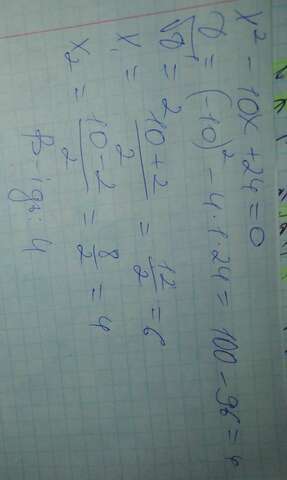 x² - 10x + 24 = 0
D = (-10)² - 4·1·24 = 100 - 96 = 4
√D = 2
x₁ = (10+2)/2 = 12/2 = 6
x₂ = (10-2)/2 = 8/2 = 4
В-ідь: 4